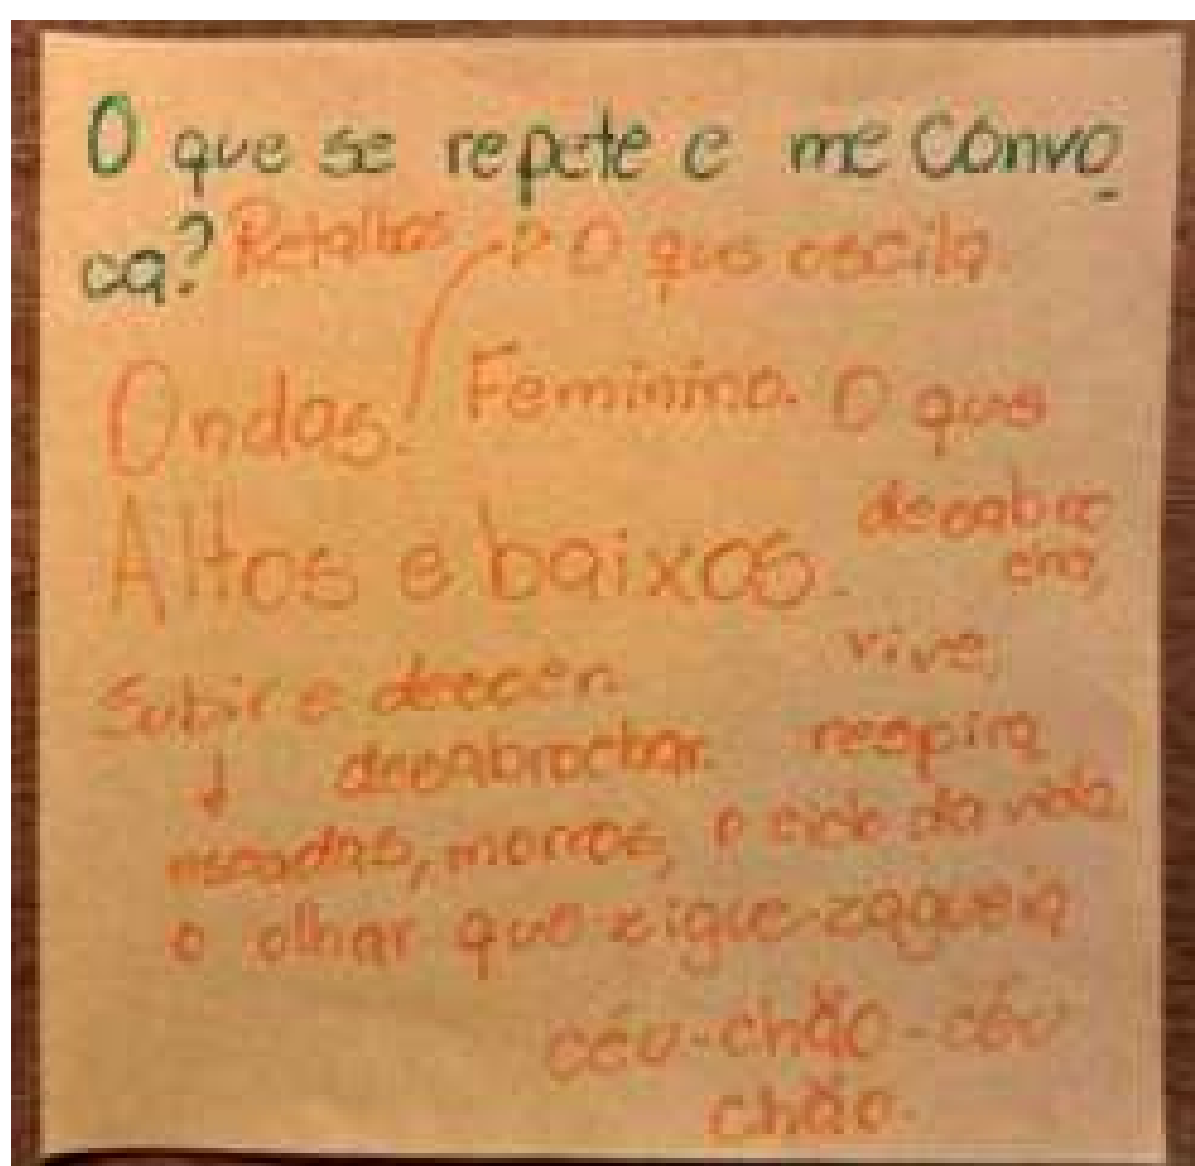 O que se repete e me convo
ca? Retalhos → O que oscila.
Ondas. Feminino. O que
desabro
cha,
Altos e baixos.
vive,
Subir e descer.
↓ desabrochar. respira
escadas, morros, o ciclo da vida.
o olhar que zigue-zagueia
céu-chão-céu
chão.